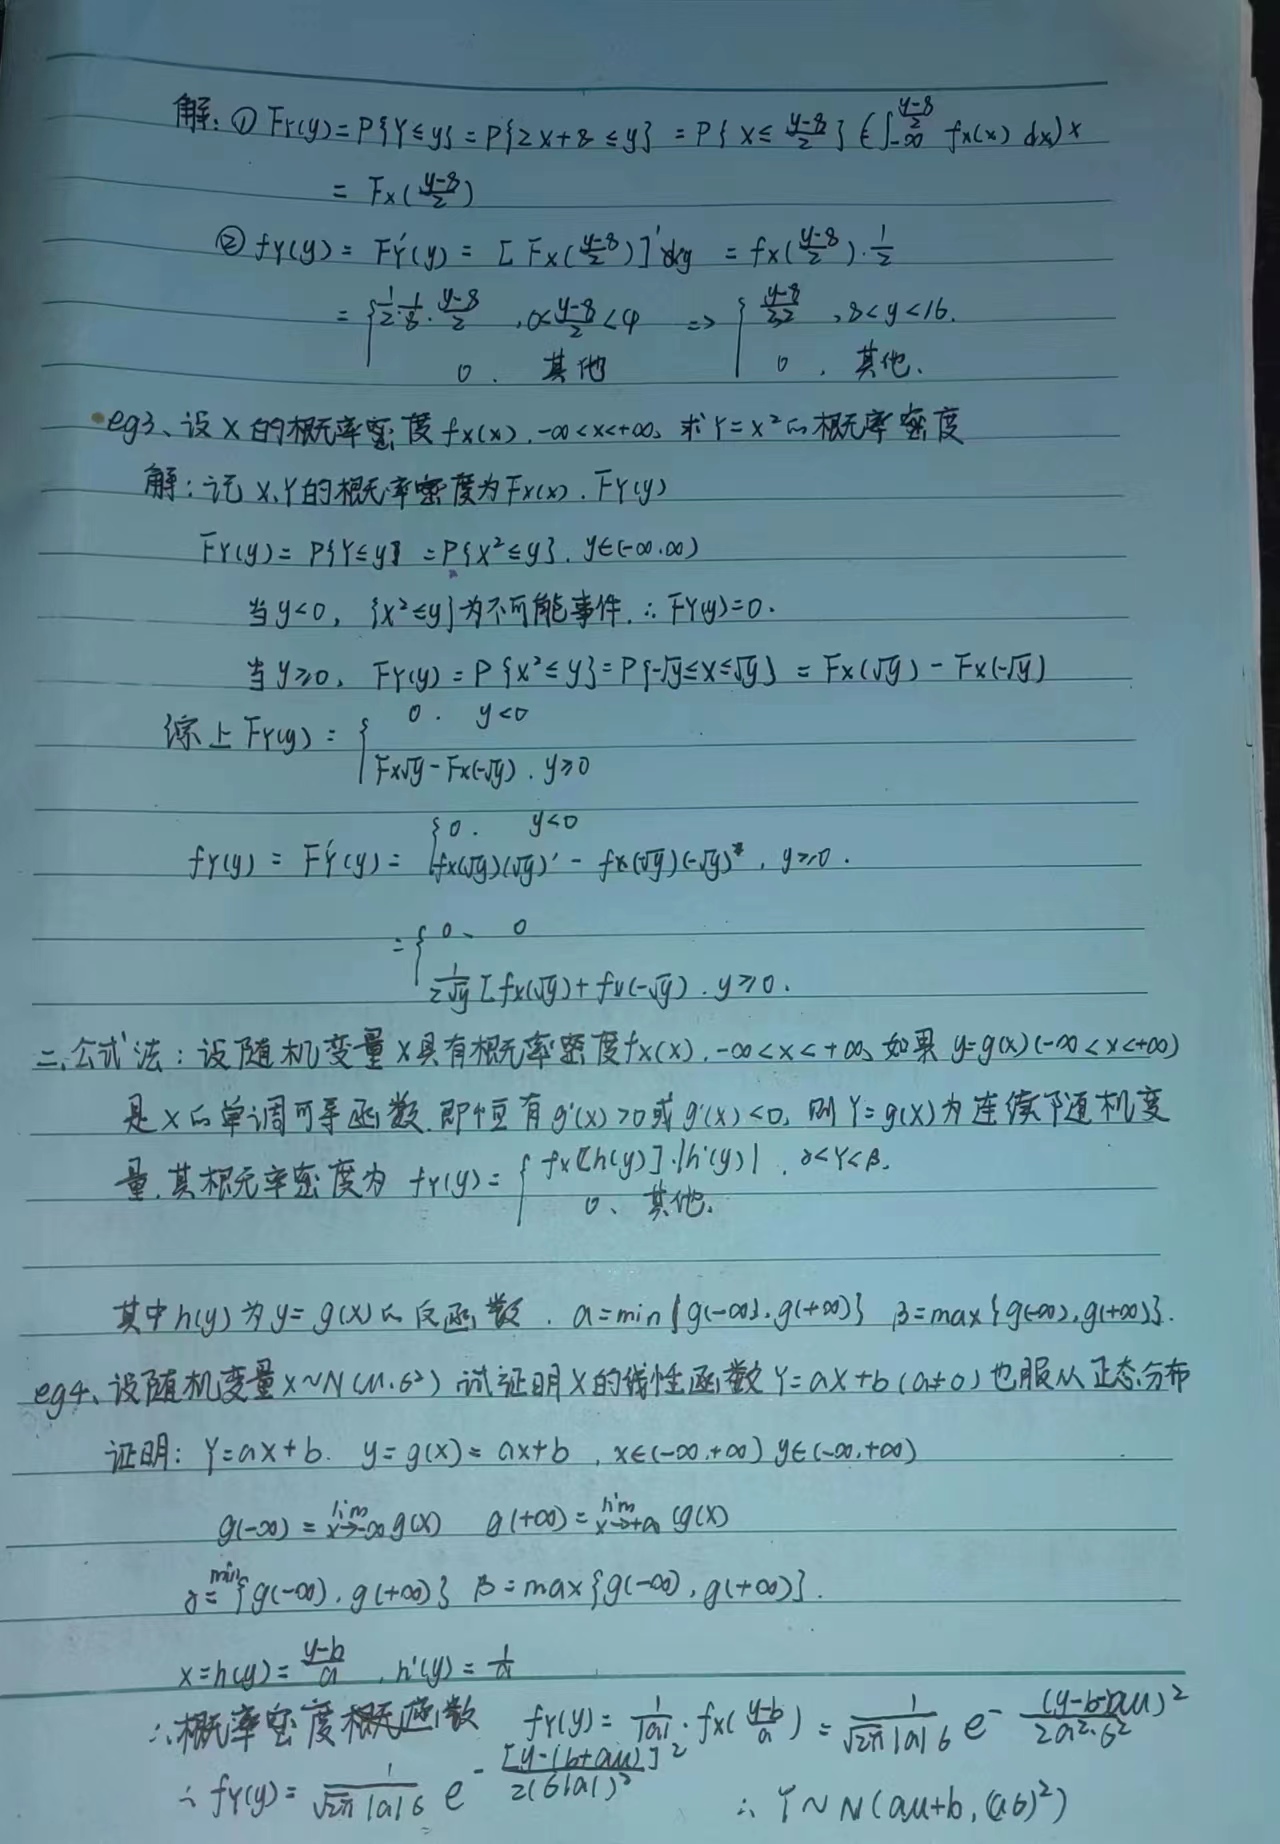 解：① FY(y)=P{Y≤y}=P{2X+8≤y}=P{X≤(y-8)/2} (∫_{-∞}^{(y-8)/2} fx(x) dx)x
= Fx((y-8)/2)
② fY(y)=FY'(y)=[Fx((y-8)/2)]'=fx((y-8)/2)·1/2
={1/2·1/8·(y-8)/2 , 0<(y-8)/2<4 => {(y-8)/32 , 8<y<16.
0. 其他 0, 其他.
eg3、设X的概率密度fx(x), -∞<x<+∞, 求Y=X²的概率密度
解：记X,Y的概率密度为Fx(x). FY(y)
FY(y)=P{Y≤y}=P{X²≤y}. y∈(-∞.∞)
当y<0, {X²≤y}为不可能事件.∴FY(y)=0.
当y≥0, FY(y)=P{X²≤y}=P{-√y≤X≤√y}=Fx(√y)-Fx(-√y)
综上FY(y)={0. y<0
Fx√y-Fx(-√y). y≥0
fY(y)=FY'(y)={0. y<0
fx(√y)(√y)'-fx(-√y)(-√y)', y≥0.
={0、 0
1/(2√y)[fx(√y)+fx(-√y). y≥0.
二.公式法：设随机变量X具有概率密度fx(x), -∞<x<+∞, 如果y=g(x)(-∞<x<+∞)
是X的单调可导函数.即恒有g'(x)>0或g'(x)<0, 则Y=g(X)为连续随机变
量.其概率密度为 fY(y)={fx[h(y)]·|h'(y)|, α<Y<β.
0、其他.
其中h(y)为y=g(x)的反函数. α=min{g(-∞), g(+∞)} β=max{g(-∞), g(+∞)}.
eg4、设随机变量X~N(μ.σ²) 试证明X的线性函数Y=aX+b(a≠0)也服从正态分布
证明：Y=aX+b. y=g(x)=ax+b , x∈(-∞,+∞) y∈(-∞,+∞)
g(-∞)=lim_{x→-∞} g(x) g(+∞)=lim_{x→+∞} g(x)
α=min{g(-∞), g(+∞)} β=max{g(-∞), g(+∞)}.
x=h(y)=(y-b)/a , h'(y)=1/a
∴概率密度函数 fY(y)=1/|a|·fx((y-b)/a)=1/(√2π|a|σ) e^{-(y-b-aμ)²/(2a²·σ²)}
∴fY(y)=1/(√2π|a|σ) e^{-[y-(b+aμ)]²/(2(σ|a|)²)} ∴Y~N(aμ+b,(aσ)²)